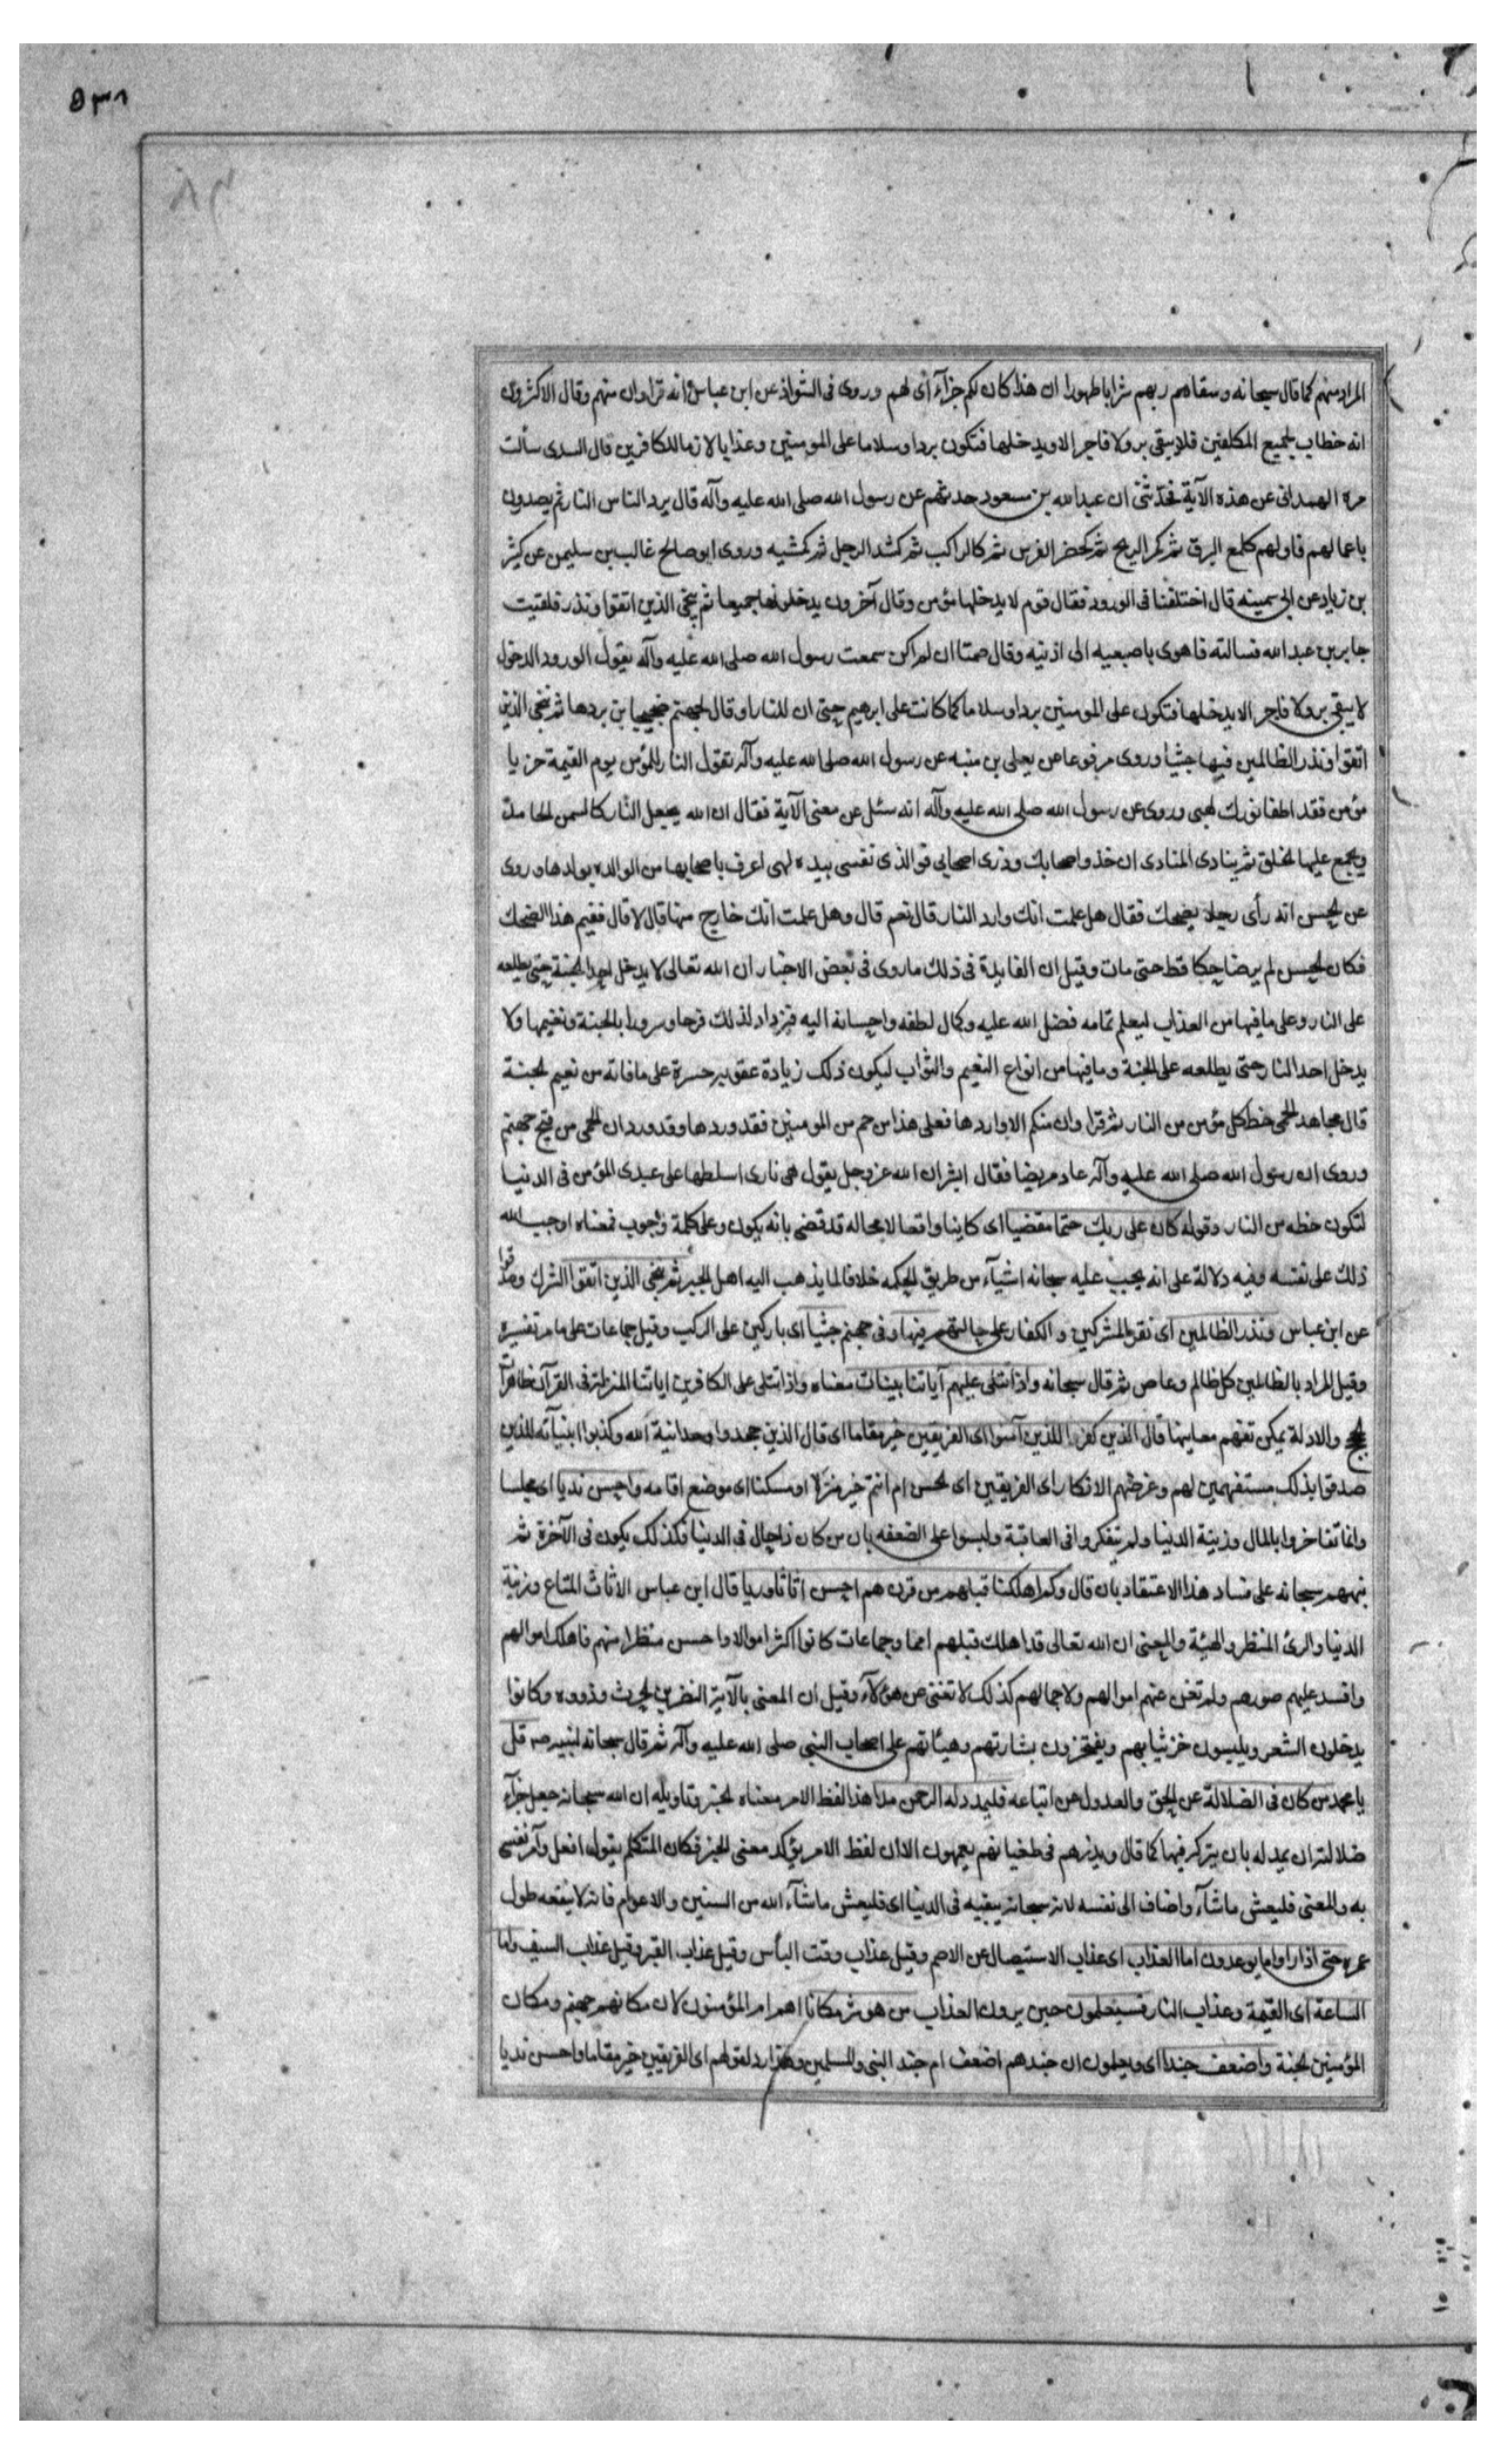 ٥٣٨
المراد منهم كما قال سبحانه وسقاهم ربهم شرابا طهورا ان هذا كان لكم جزآء اى لهم وروى فى الشواذ عن ابن عباس انه قرا وان منهم وقال الاكثرون
انه خطاب لجميع المكلفين فلا يبقى بر ولا فاجر الا ويدخلها فتكون بردا وسلاما على المومنين وعذابا لازما للكافرين قال السدى سألت
مرة الهمدانى عن هذه الآية فحدثنى ان عبد الله بن مسعود حدثهم عن رسول الله صلى الله عليه وآله قال يرد الناس النار ثم يصدرون
باعمالهم فاولهم كلمع البرق ثم كمر الريح ثم كحضر الفرس ثم كالراكب ثم كشد الرجل ثم كمشيه وروى ابو صالح غالب بن سليمن عن كثير
بن زياد عن ابى سمينه قال اختلفنا فى الورود فقال قوم لا يدخلها مؤمن وقال آخرون يدخلونها جميعا ثم ينجى الذين اتقوا ونذر فلقيت
جابر بن عبد الله فسالته فاهوى باصبعيه الى اذنيه وقال صمتا ان لم اكن سمعت رسول الله صلى الله عليه وآله يقول الورود الدخول
لا يبقى بر ولا فاجر الا يدخلها فتكون على المومنين بردا وسلاما كما كانت على ابرهيم حتى ان للنار او قال لجهنم ضجيجا من بردها ثم ننجى الذين
اتقوا ونذر الظالمين فيها جثيا وروى مرفوعا عن يعلى بن منبه عن رسول الله صلى الله عليه وآله تقول النار للمؤمن يوم القيمة جز يا
مؤمن فقد اطفا نورك لهبى وروى عن رسول الله صلى الله عليه وآله انه سئل عن معنى الآية فقال ان الله يجعل النار كالسمن الجامد
ويجمع عليها الخلق ثم ينادى المنادى ان خذ واصحابك وذرى اصحابى فوالذى نفسى بيده لهى اعرف باصحابها من الوالده بولدها وروى
عن الحسن انه رأى رجلا يضحك فقال هل علمت انك وارد النار قال نعم قال وهل علمت انك خارج منها قال لا قال ففيم هذا الضحك
فكان الحسن لم ير ضاحكا قط حتى مات وقيل ان الفايدة فى ذلك ما روى فى بعض الاخبار ان الله تعالى لا يدخل احدا الجنة حتى يطلعه
على النار وعلى ما فيها من العذاب ليعلم تمامه فضل الله عليه وكمال لطفه واحسانه اليه فيزداد لذلك فرحا وسرورا بالجنة ونعيمها ولا
يدخل احد النار حتى يطلعه على الجنة وما فيها من انواع النعيم والثواب ليكون ذلك زيادة عقوبه وحسرة على ما فاته من نعيم الجنة
قال مجاهد الحمى حظ كل مؤمن من النار ثم قرا وان منكم الا واردها فعلى هذا من حم من المومنين فقد وردها وقد ورد ان الحمى من فيح جهنم
وروى ان رسول الله صلى الله عليه وآله عاد مريضا فقال ابشر ان الله عز وجل يقول هى نارى اسلطها على عبدى المؤمن فى الدنيا
لتكون حظه من النار وقوله كان على ربك حتما مقضيا اى كاينا واقعا لا محاله قد قضى بانه يكون وعلى كلمة وجوب فمعناه اوجب الله
ذلك على نفسه وفيه دلالة على انه يجب عليه سبحانه اشيآء من طريق الحكمه خلافا لما يذهب اليه اهل الجبر ثم ننجى الذين اتقوا الشرك وصدقوا
عن ابن عباس ونذر الظالمين اى نقر المشركين والكفار على حالتهم فيها وفى جهنم جثيا اى باركين على الركب وقيل جماعات على ما مر تفسيره
وقيل المراد بالظالمين كل ظالم وعاص ثم قال سبحانه واذا تتلى عليهم آياتنا بينات معناه واذا تتلى على الكافرين اياتنا المنزلة فى القرآن ظاهرات
الحجج والادلة يمكن تفهم معانيها قال الذين كفروا للذين آمنوا اى الفريقين خير مقاما اى قال الذين جحدوا وحدانية الله وكذبوا انبيآئه للذين
صدقوا بذلك مستفهمين لهم وغرضهم الانكار اى الفريقين اى نحن ام انتم خير منزلا او مسكنا اى موضع اقامه واحسن نديا اى مجلسا
وانما تفاخروا بالمال وزينة الدنيا ولم يتفكروا فى العاقبة ولبسوا على الضعفه بان من كان ذا مال فى الدنيا فكذلك يكون فى الآخرة ثم
نبههم سبحانه على فساد هذا الاعتقاد بان قال وكم اهلكنا قبلهم من قرن هم احسن اثاثا وريا قال ابن عباس الاثاث المتاع وزينة
الدنيا والرئ المنظر والهيئة والمعنى ان الله تعالى قد اهلك قبلهم امما وجماعات كانوا اكثر اموالا واحسن منظرا منهم فاهلك اموالهم
وافسد عليهم صورهم ولم تغن عنهم اموالهم ولا جمالهم كذلك لا تغنى عن هؤلآء وقيل ان المعنى بالآية النضر بن الحرث وذووه وكانوا
يدخلون الشعر ويلبسون خز ثيابهم ويفتخرون بشارتهم وهيئاتهم على اصحاب النبى صلى الله عليه وآله ثم قال سبحانه لنبيه صه قل
يا محمد من كان فى الضلالة عن الحق والعدول عن اتباعه فليمدد له الرحمن مدا هذا لفظ الامر معناه الخبر وتاويله ان الله سبحانه جعل جزآء
ضلالته ان يمد له بان يتركه فيها كما قال ويذرهم فى طغيانهم يعمهون الا ان لفظ الامر يؤكد معنى الخبر فكان المتكلم يقول افعل وآمر نفسى
به والمعنى فليعش ما شآء واضاف الى نفسه لانه سبحانه يبقيه فى الدنيا اى فليعش ما شآء الله من السنين والاعوام فانه لا ينفعه طول
عمره حتى اذا راوا ما يوعدون اما العذاب اى عذاب الاستيصال عن الاصم وقيل عذاب وقت البأس وقيل عذاب القبر وقيل عذاب السيف واما
الساعة اى القيمة وعذاب النار فسيعلمون حين يرون العذاب من هو شر مكانا اهم ام المؤمنون لان مكانهم جهنم ومكان
المؤمنين الجنة واضعف جندا اى ويعلمون ان جندهم اضعف ام جند النبى والمسلمين وهذا رد لقولهم اى الفريقين خير مقاما واحسن نديا